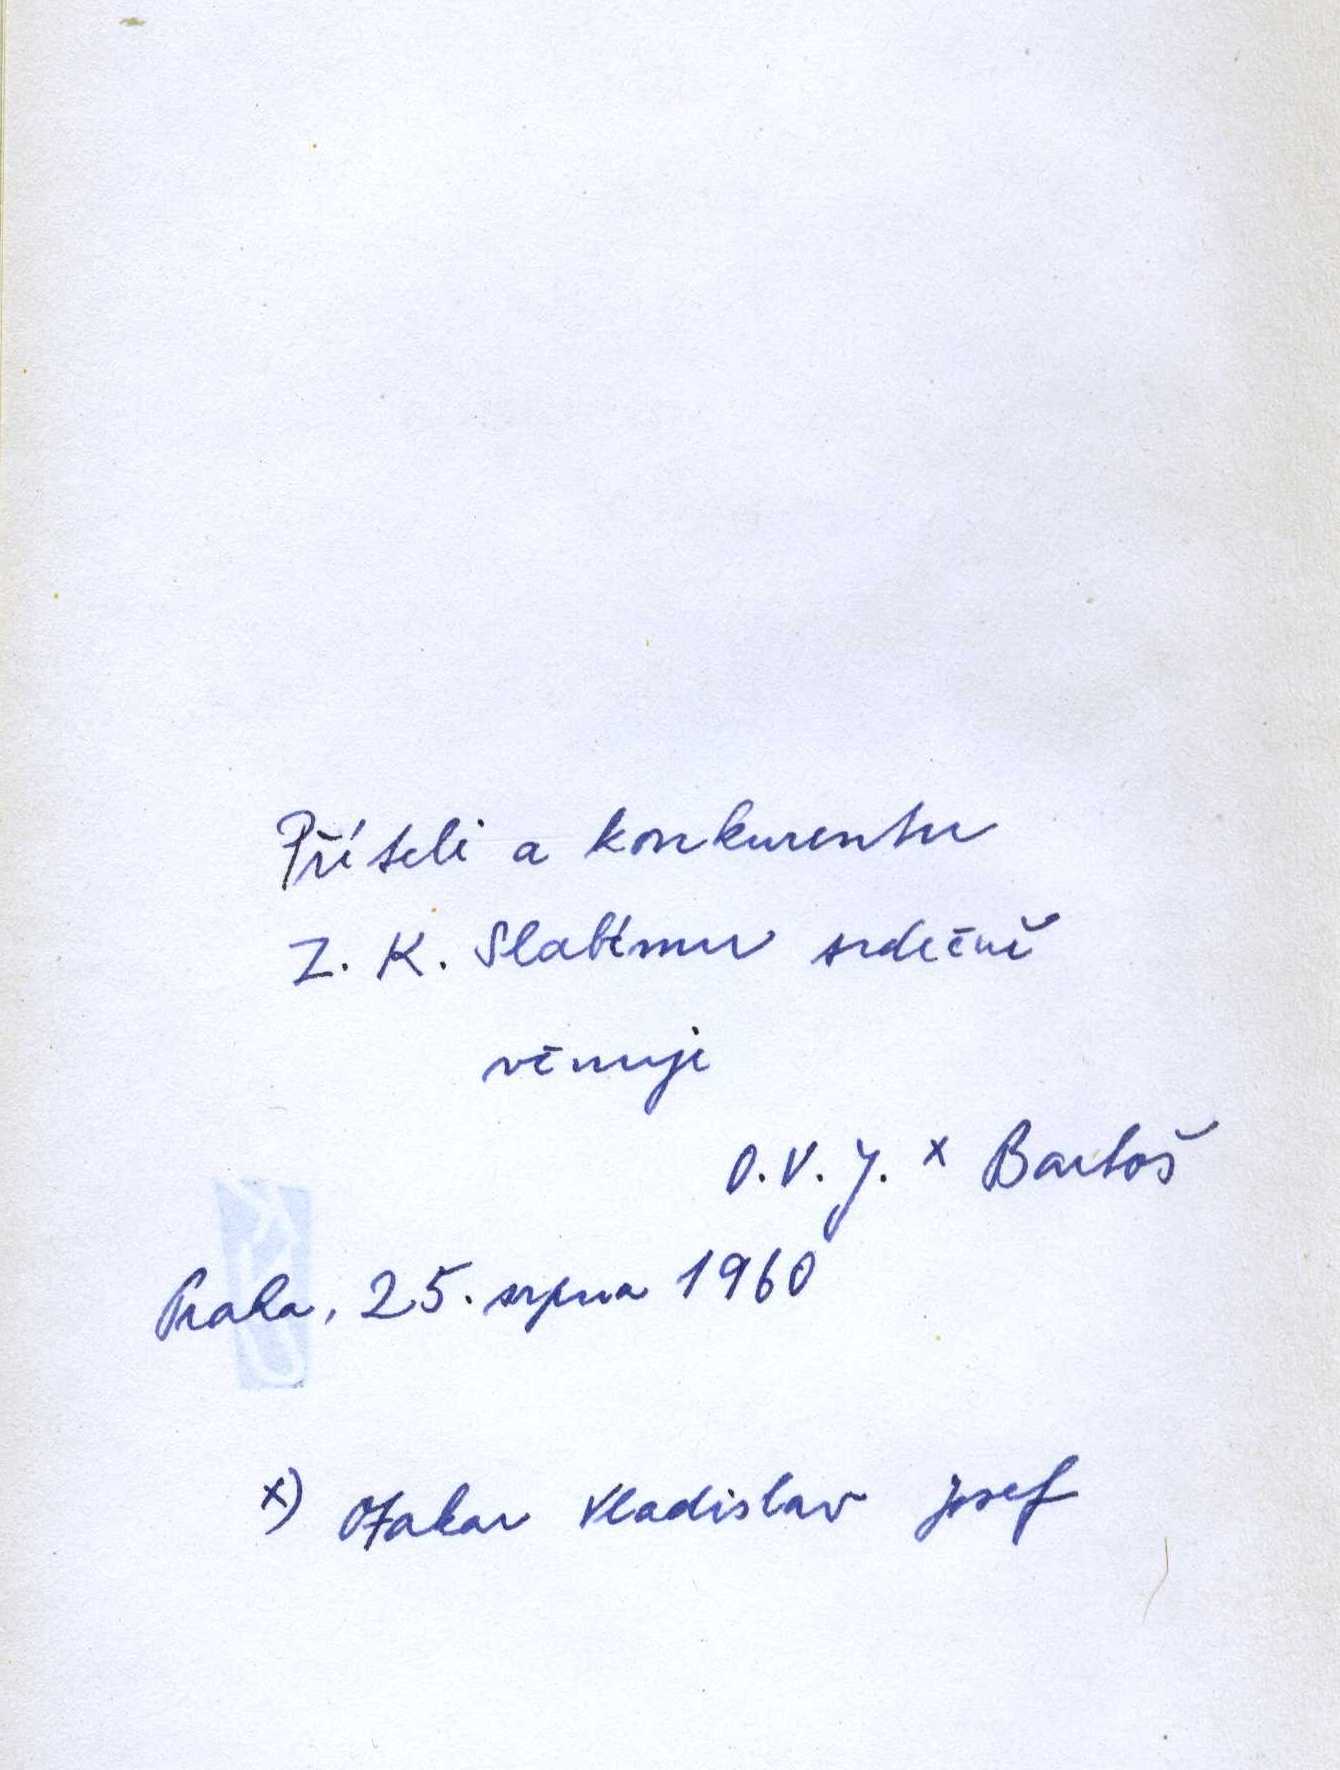 Příteli a konkurentu
Z. K. Slabému srdečně
věnuje
O. V. J. x Bartoš
Praha, 25. srpna 1960
x) Otakar Vladislav Josef